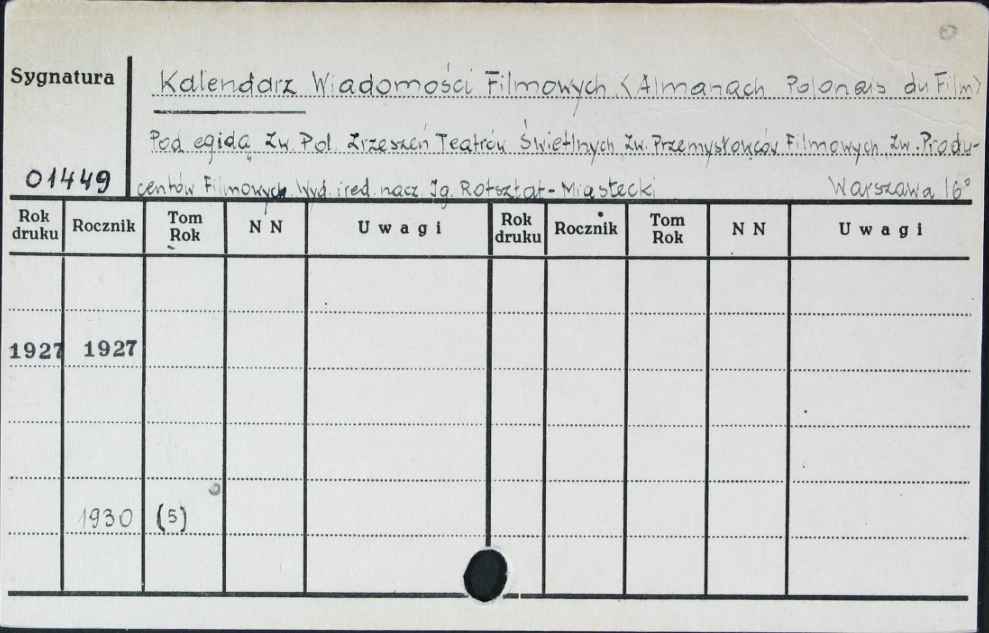 Sygnatura
Kalendarz Wiadomości Filmowych (Almanach Polonais du Film)
Pod egidą Zw. Pol. Zrzeszeń Teatrów Świetlnych, Zw. Przemysłowców Filmowych, Zw. Produ-
01449
centów Filmowych. Wyd. i red. nacz. Ig. Rotsztat-Miąstecki Warszawa 16°
Rok druku Rocznik Tom Rok N N Uwagi Rok druku Rocznik Tom Rok N N Uwagi
1927 1927
1930 (5)